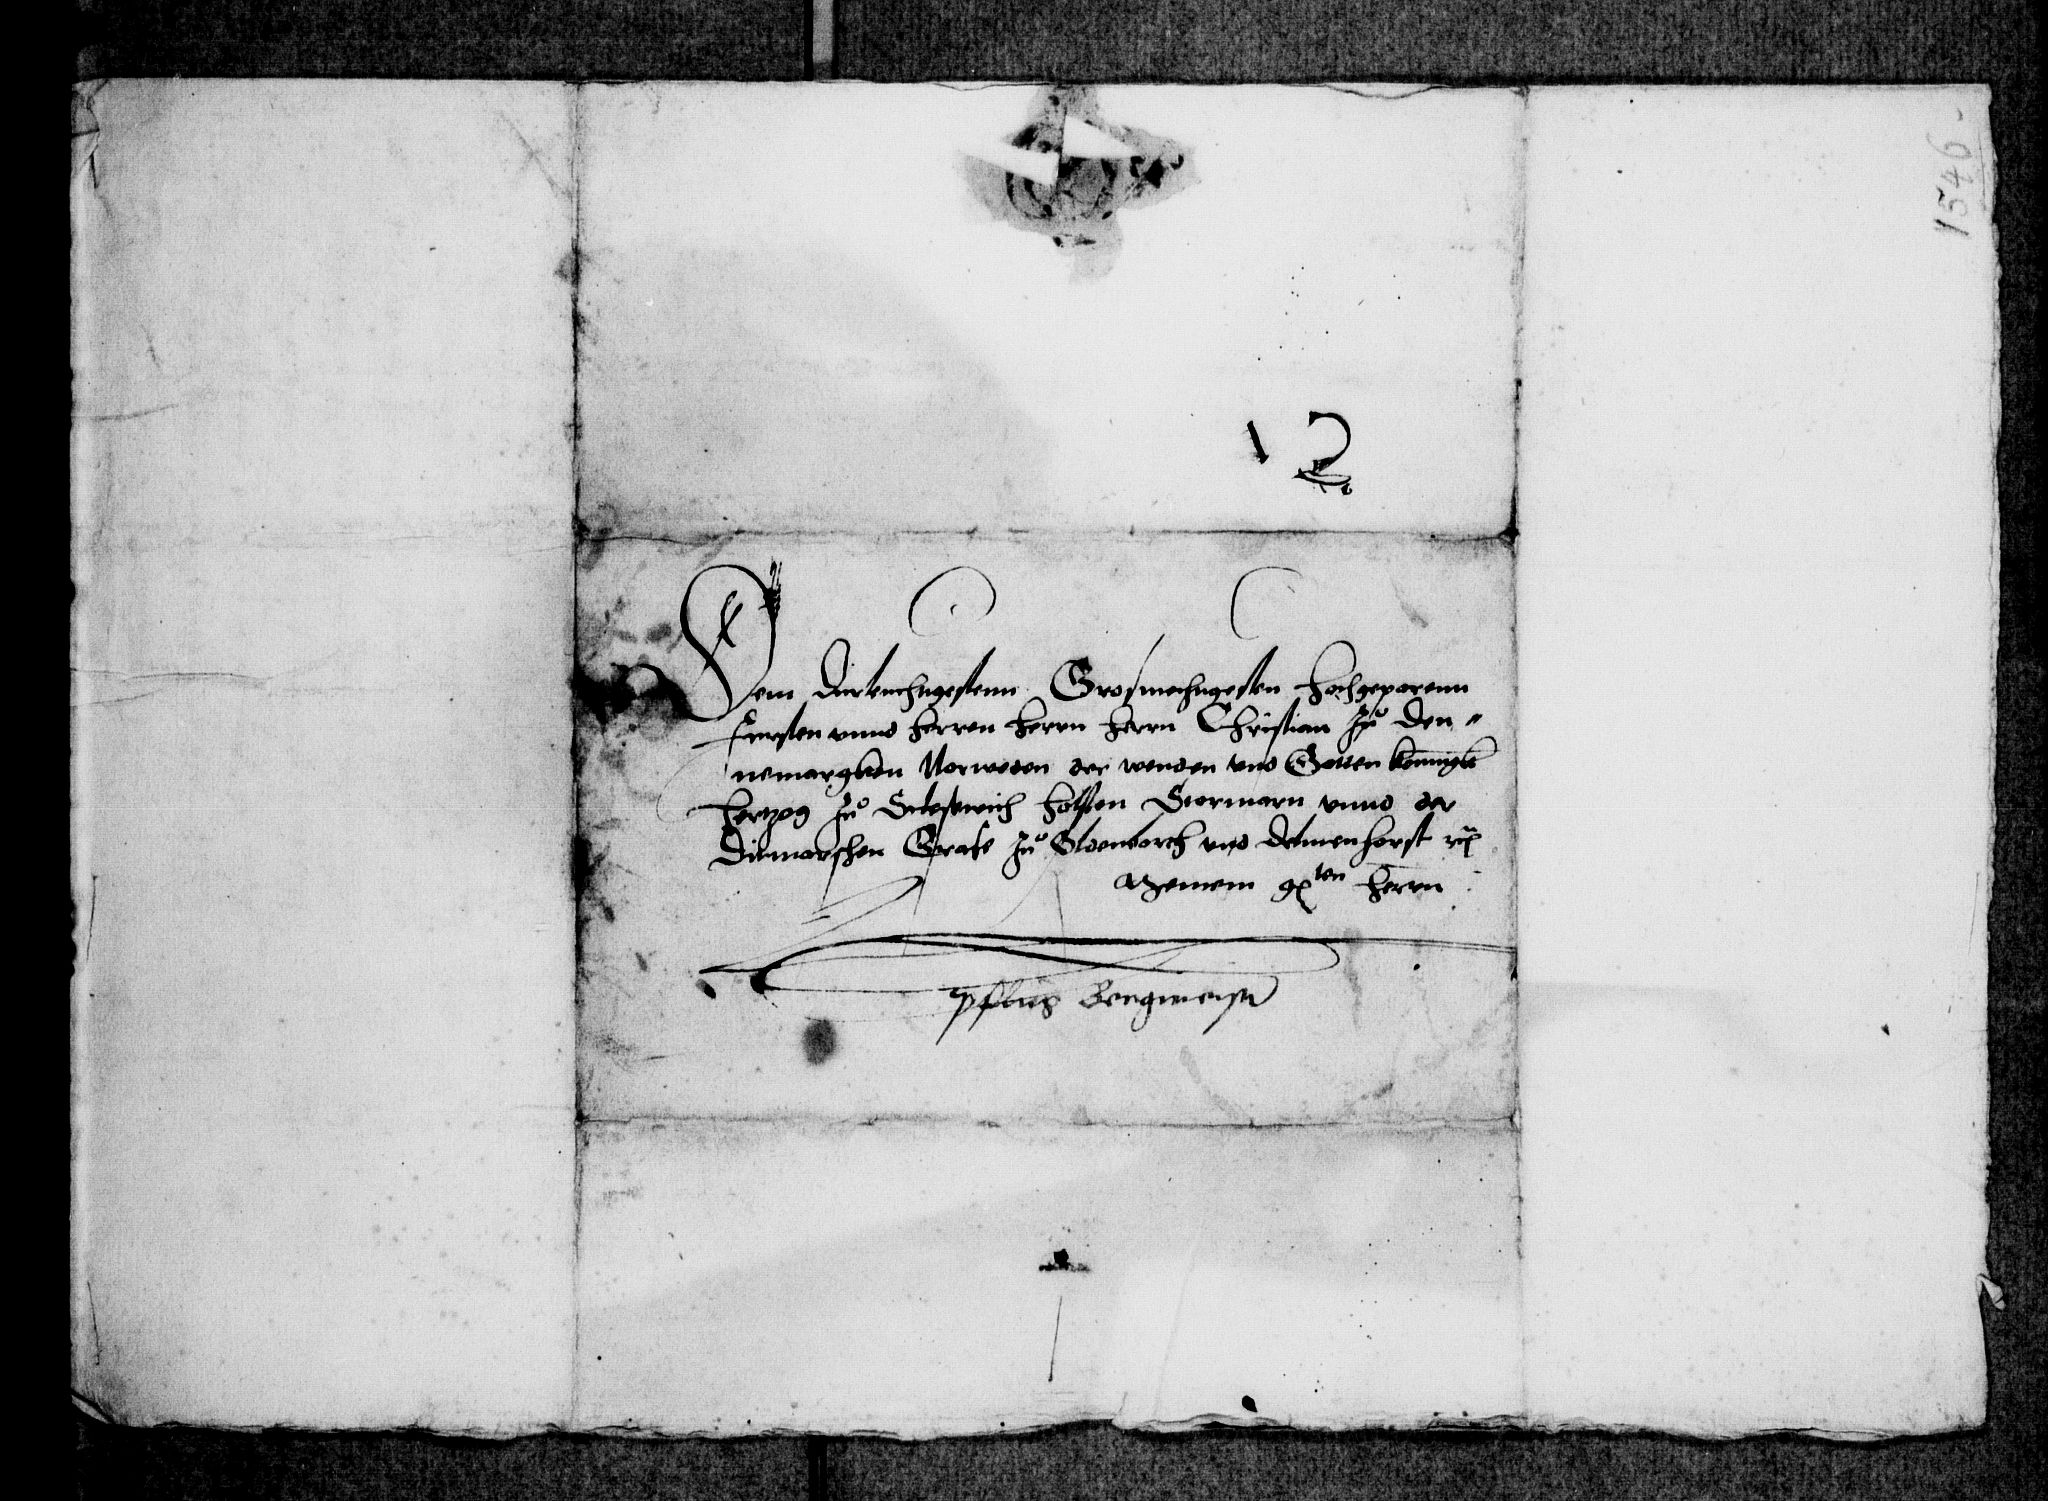 1546
12
Dem durleuchtigestenn Grosmechtigesten hochgeporenn
Fursten vnnd herren herrn herrn Christian zu den-
nemargken Norwegen der wenden vnd Gotten konnigk
hertzog zu Sleswich holsten Stormarn vnnd der
Ditmarschen Grafe zu Oldenborch vnd delmenhorst
Meinem gten herrn
Pflug Bergmeister